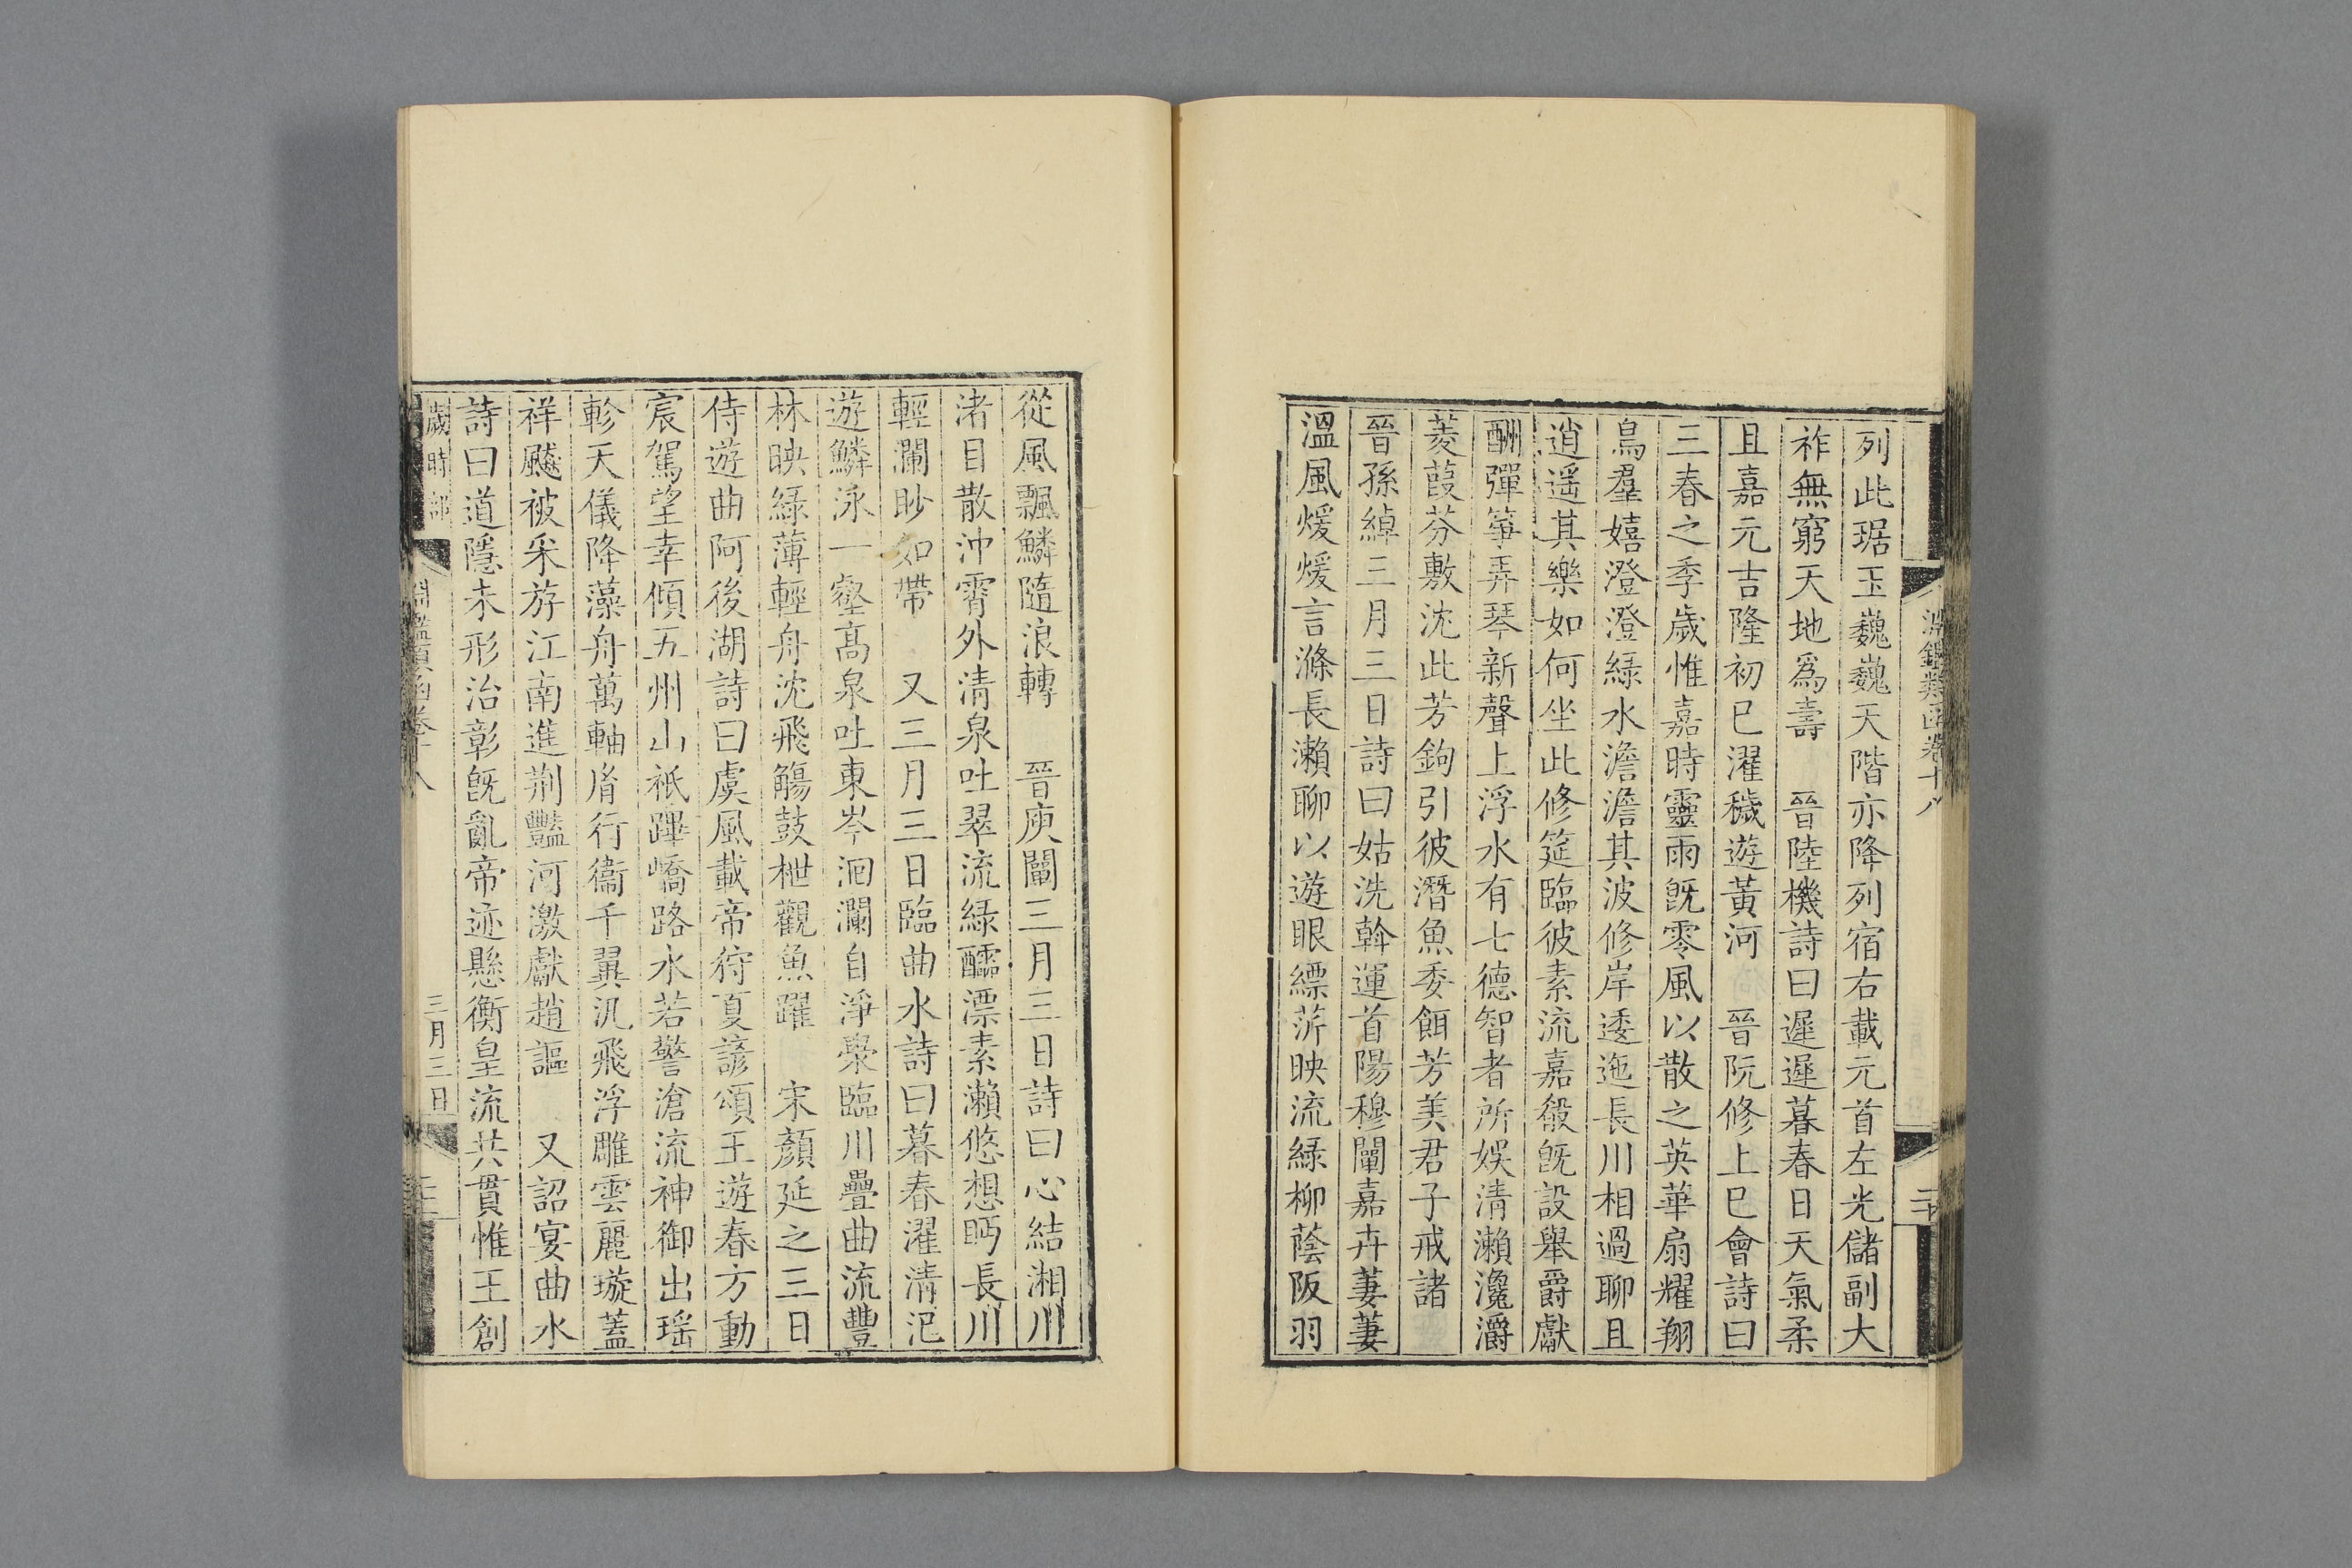 淵鑑類函卷十八
列此琚玉巍巍天階亦降列宿右載元首左光儲副大
祚無窮天地爲壽　晉陸機詩曰遲遲暮春日天氣柔
且嘉元吉隆初巳濯穢遊黃河　晉阮修上巳會詩曰
三春之季歲惟嘉時靈雨旣零風以散之英華扇耀翔
鳥羣嬉澄澄綠水澹澹其波修岸逶迤長川相過聊且
逍遙其樂如何坐此修筵臨彼素流嘉殽旣設舉爵獻
酬彈箏弄琴新聲上浮水有七德智者所娛清瀨瀺灂
菱葭芬敷沈此芳鉤引彼潛魚委餌芳美君子戒諸
晉孫綽三月三日詩曰姑洗斡運首陽穆闡嘉卉萋萋
溫風煖煖言滌長瀨聊以遊眼縹萍映流綠柳蔭阪羽
從風飄鱗隨浪轉　晉庾闡三月三日詩曰心結湘川
渚目散沖霄外清泉吐翠流綠醽漂素瀨悠想眄長川
輕瀾眇如帶　又三月三日臨曲水詩曰暮春濯清汜
遊鱗泳一壑高泉吐東岑洄瀾自淨榮臨川疊曲流豐
林映綠薄輕舟沈飛觴鼓枻觀魚躍　宋顏延之三日
侍遊曲阿後湖詩曰虞風載帝狩夏諺頌王遊春方動
宸駕望幸傾五州山祇蹕嶠路水若警滄流神御出瑤
軫天儀降藻舟萬軸胤行衞千翼汎飛浮雕雲麗璇蓋
祥飈被采斿江南進荆豔河激獻趙謳　又詔宴曲水
詩曰道隱未形治彰旣亂帝迹懸衡皇流共貫惟王創
歲時部　淵鑑類函卷十八　三月三日